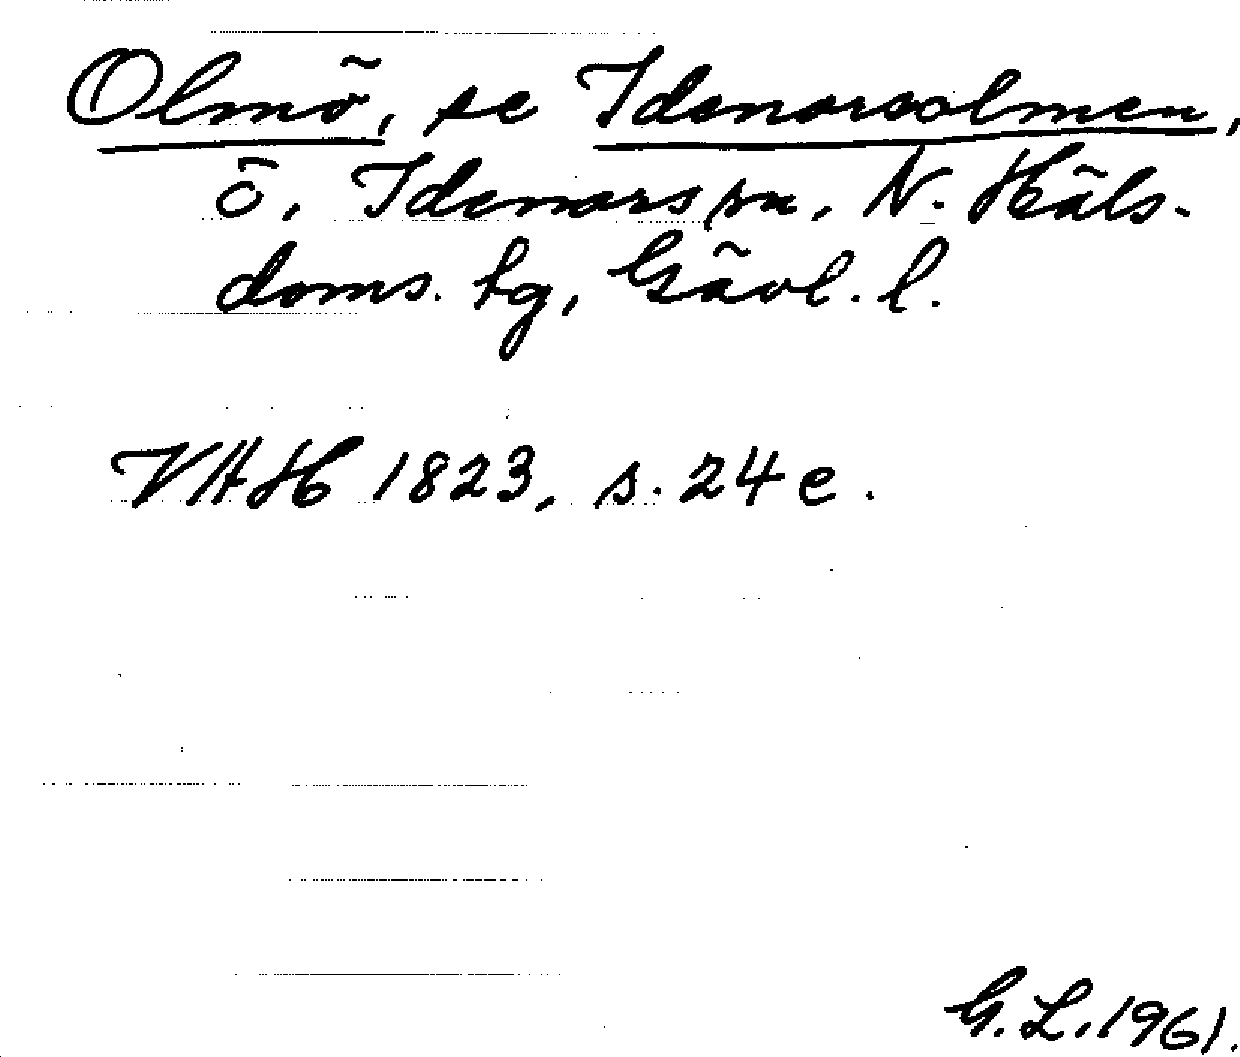 Olmö, se Idenorsolmen,
ö, Idenors sn, N. Häls.
doms. hg, Gävl. l.
VAH 1823, s. 24 e.
G. L. 1961.